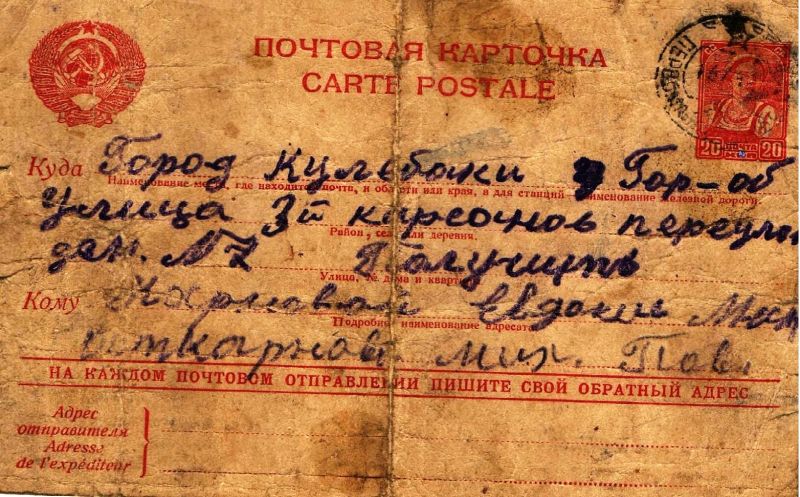 ПОЧТОВАЯ КАРТОЧКА
CARTE POSTALE
ПОЧТА
20 20
Куда Город Кулебаки Гор-об
Наименование места, где находится почта, и области или края, а для станций наименование железной дороги.
Улица 3й переулок
Район, село или деревня.
дом. №7 Получить
Улица, № дома и квартиры
Кому Евдокии
Подробное наименование адресата
от Мих. Пав.
НА КАЖДОМ ПОЧТОВОМ ОТПРАВЛЕНИИ ПИШИТЕ СВОЙ ОБРАТНЫЙ АДРЕС
Адрес
отправителя
Adresse
de l'expéditeur